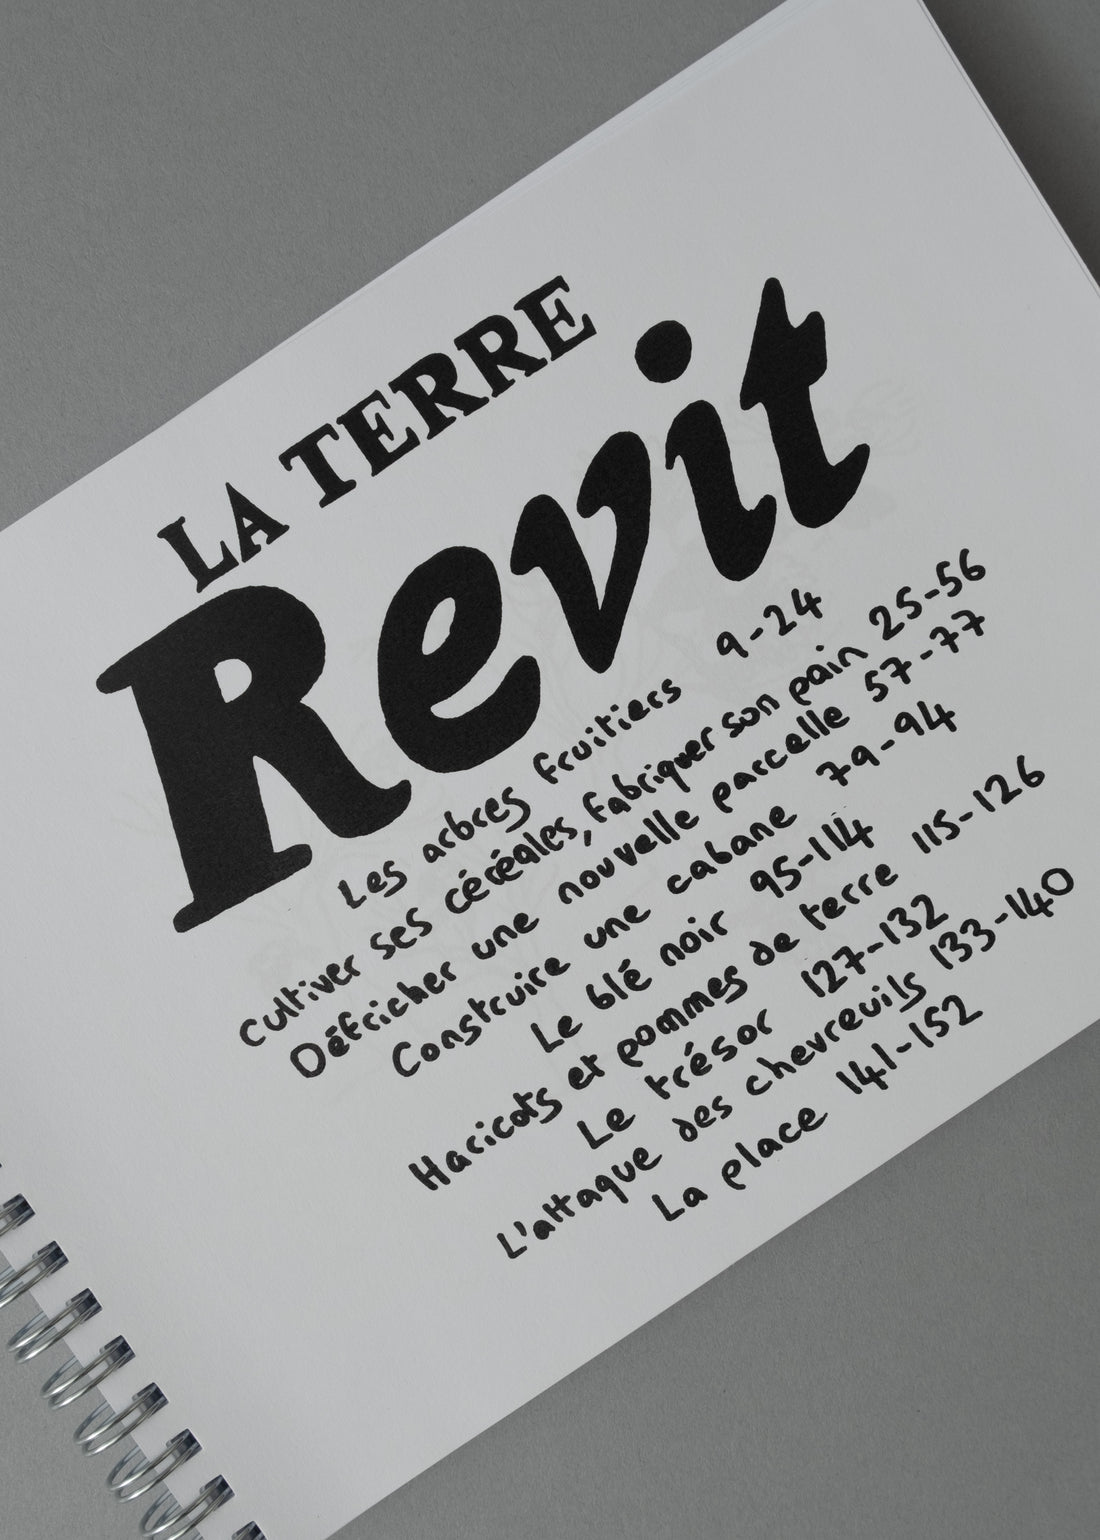 LA TERRE
Revit
Les arbres fruitiers 9-24
Cultiver ses céréales, fabriquer son pain 25-56
Défricher une nouvelle parcelle 57-77
Construire une cabane 79-94
Le blé noir 95-114
Haricots et pommes de terre 115-126
Le trésor 127-132
L'attaque des chevreuils 133-140
La place 141-152